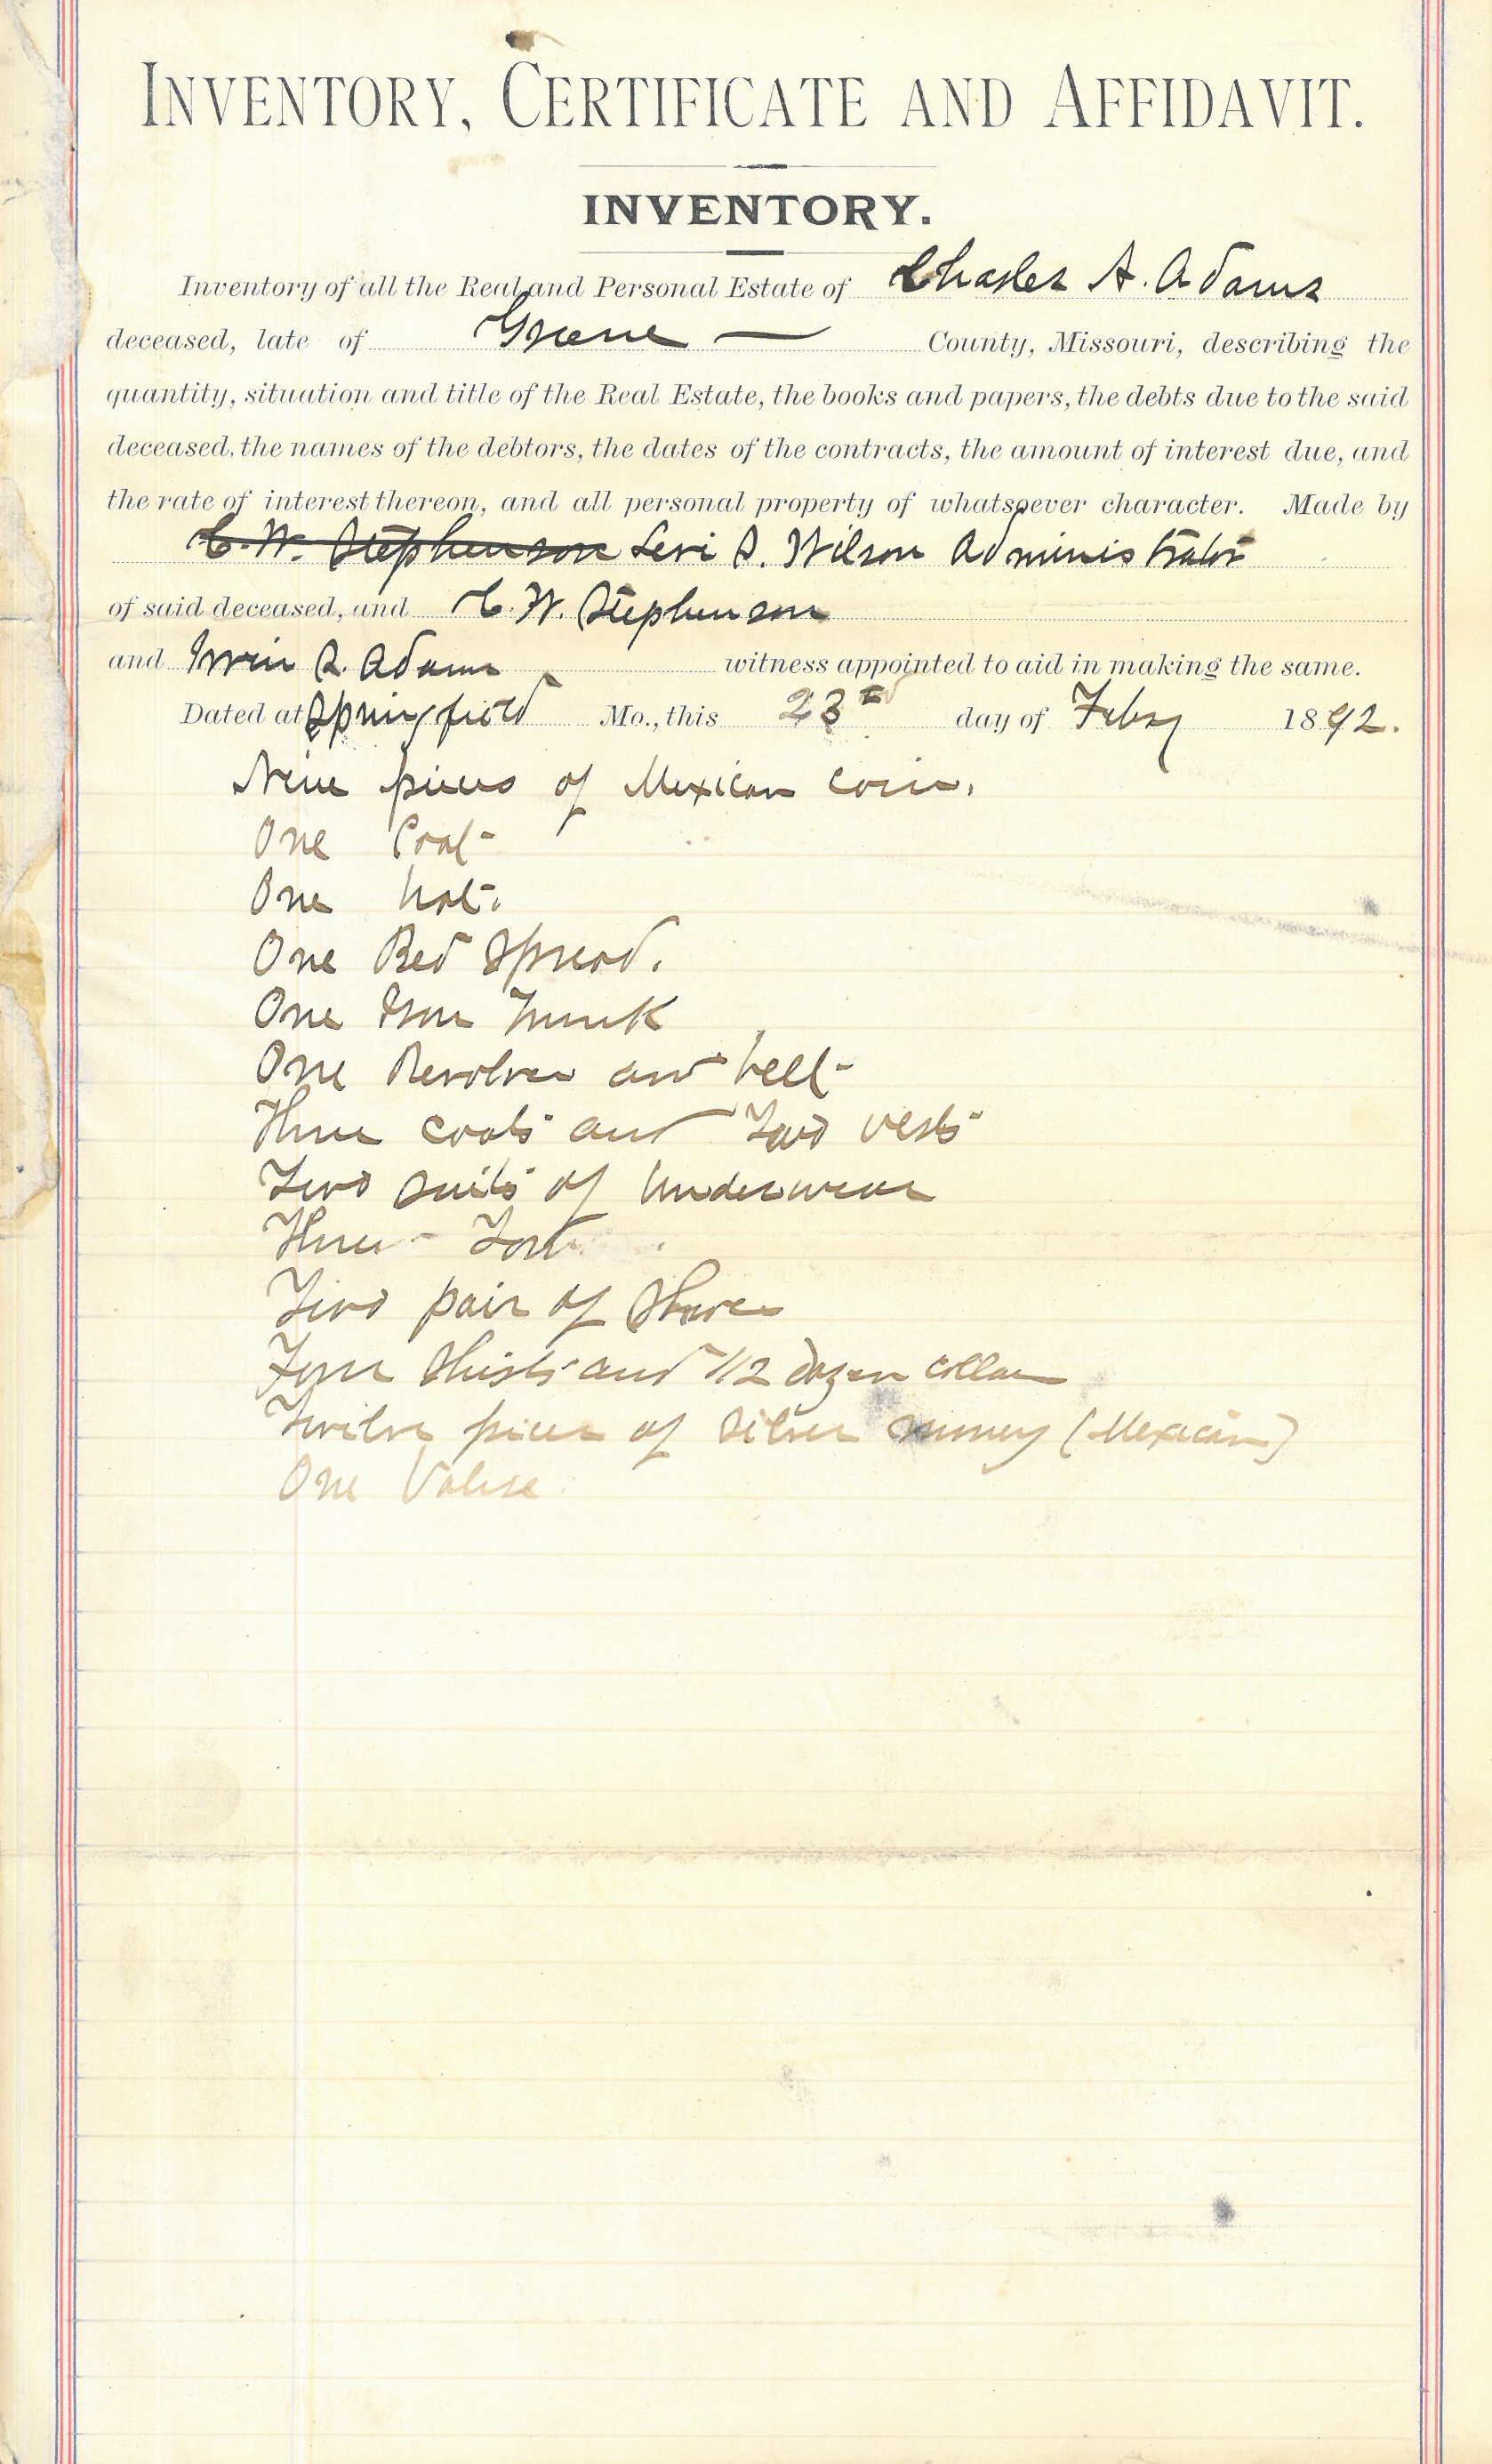 INVENTORY, CERTIFICATE AND AFFIDAVIT.
INVENTORY.
Inventory of all the Real and Personal Estate of Charles A. Adams
deceased, late of Greene County, Missouri, describing the
quantity, situation and title of the Real Estate, the books and papers, the debts due to the said
deceased, the names of the debtors, the dates of the contracts, the amount of interest due, and
the rate of interest thereon, and all personal property of whatsoever character. Made by
C. W. Stephenson Levi S. Wilson Administrator
of said deceased, and C. W. Stephenson
and S. Adams witness appointed to aid in making the same.
Dated at Springfield Mo., this 23rd day of Feby 1892.
Nine pieces of Mexican coin.
One Coat
One hat.
One Bed Spread.
One Iron Trunk
One Revolver and belt
Three coats and Two vests
Two suits of Underwear
Three
Two pair of Shoes
Four Shirts and 1/2 dozen collars
Twelve pieces of Silver money (Mexican)
One Valise.